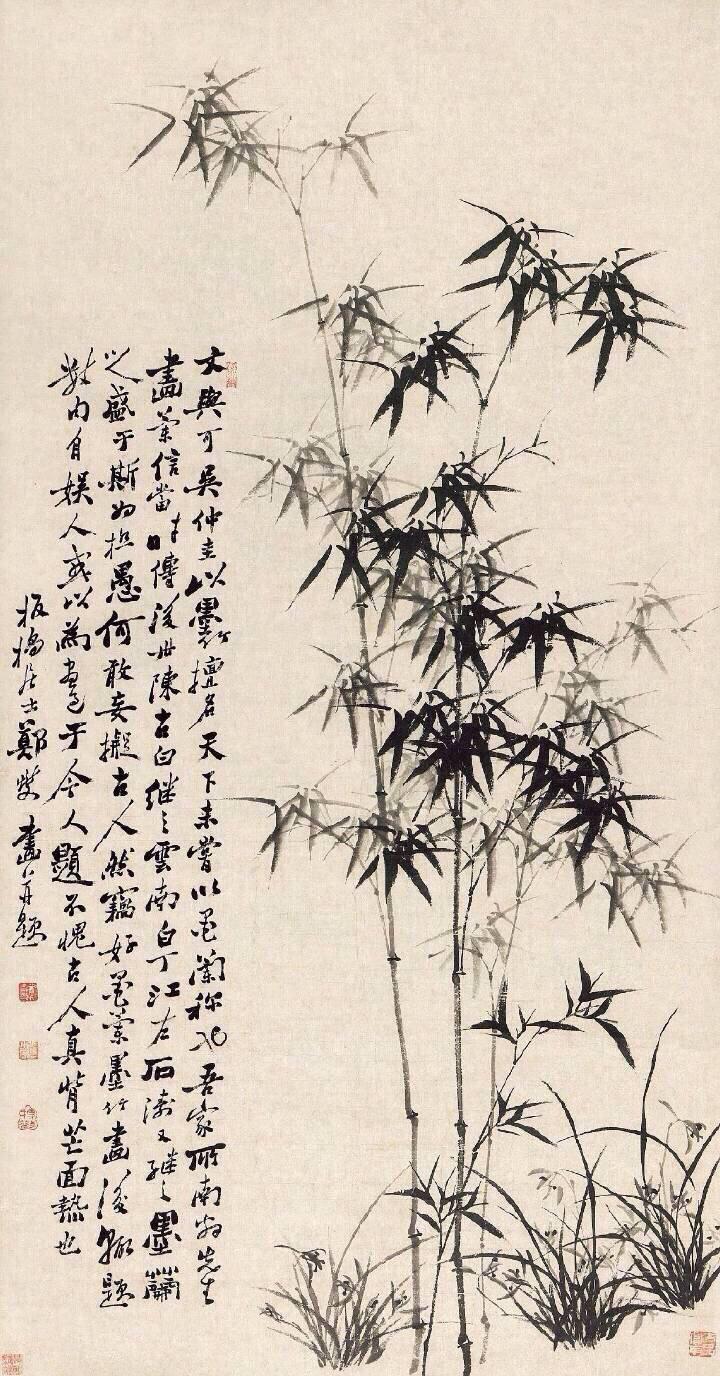 文與可吳仲圭以墨竹擅名天下未嘗以墨蘭稱也吾家所南翁先生
畫蘭信當時傳後世陳古白繼之雲南白丁江左石濤又繼之墨蘭
之盛于斯為極愚何敢妄擬古人然竊好墨蘭墨竹畫後輒題
內自娛人或以為畫邁于今人題不愧古人真背芒面熱也
板橋居士鄭燮畫并題